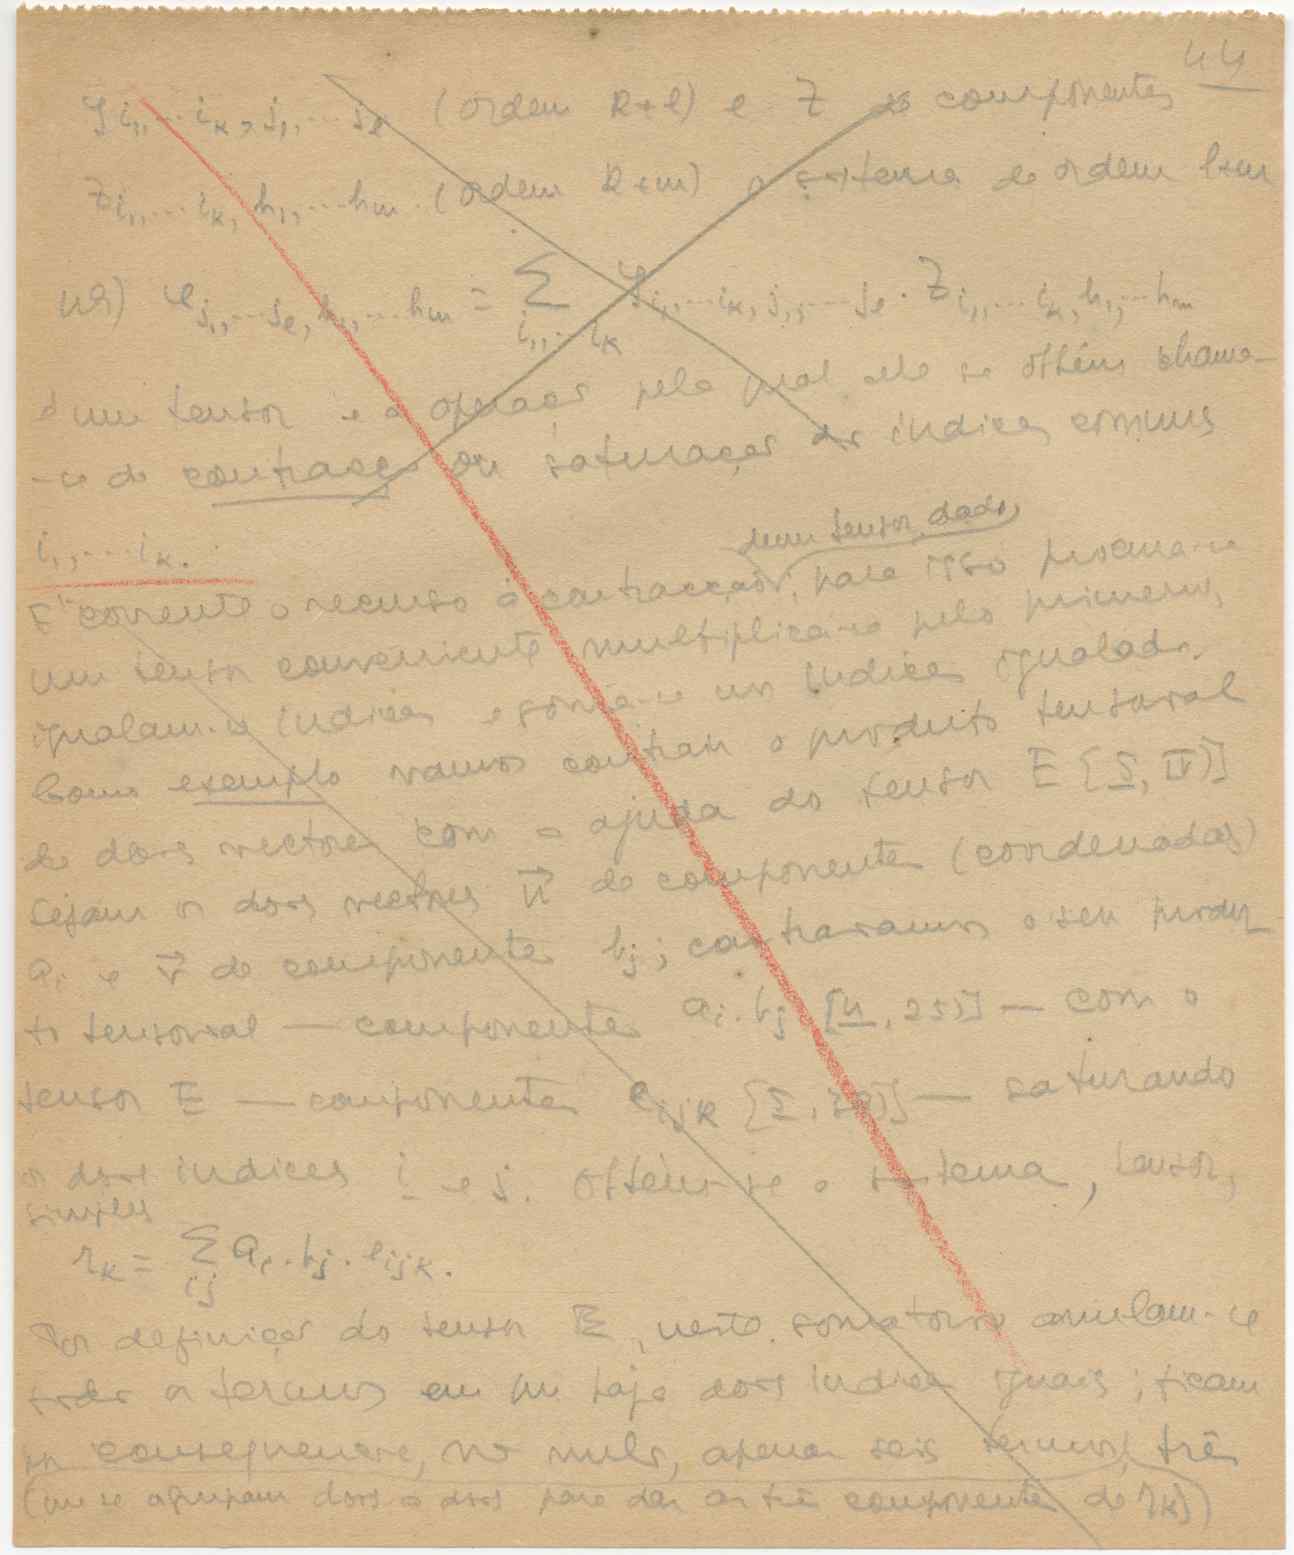 44
y i₁,...iₖ, j₁,...jₗ (ordem k+l) e Z de componentes
z i₁,...iₖ, h₁,...hₘ (ordem k+m) o sistema de ordem l+m
φ j₁,...jₗ, h₁,...hₘ = Σ i₁,...iₖ y i₁,...iₖ, j₁,...jₗ . z i₁,...iₖ, h₁,...hₘ
é um tensor e a operação pela qual ele se obtém chama-
-se de contracção ou saturação dos índices comuns
i₁,...iₖ.
dum tensor dado
É corrente o recurso à contracção; para isso procura-se
um tensor conveniente, multiplica-se pelo primeiro,
igualam-se índices e soma-se nos índices igualados.
Como exemplo vamos contrair o produto tensorial
de dois vectores com a ajuda do tensor E [I, IV)]
Sejam os dois vectores u⃗ de componentes (coordenadas)
aᵢ e v⃗ de componentes bⱼ; contraiamos o seu produ-
to tensorial — componentes aᵢ.bⱼ [4, 25)] — com o
tensor E — componentes eᵢⱼₖ — saturando
os dois índices i e j. Obtém-se o sistema, tensor,
simples
rₖ = Σ ij aᵢ.bⱼ.eᵢⱼₖ.
Por definição do tensor E, neste somatório anulam-se
todos os termos em que haja dois índices iguais; ficam
em consequência, não nulos, apenas seis termos, três
(que se agrupam dois a dois para dar as três componentes de rₖ)